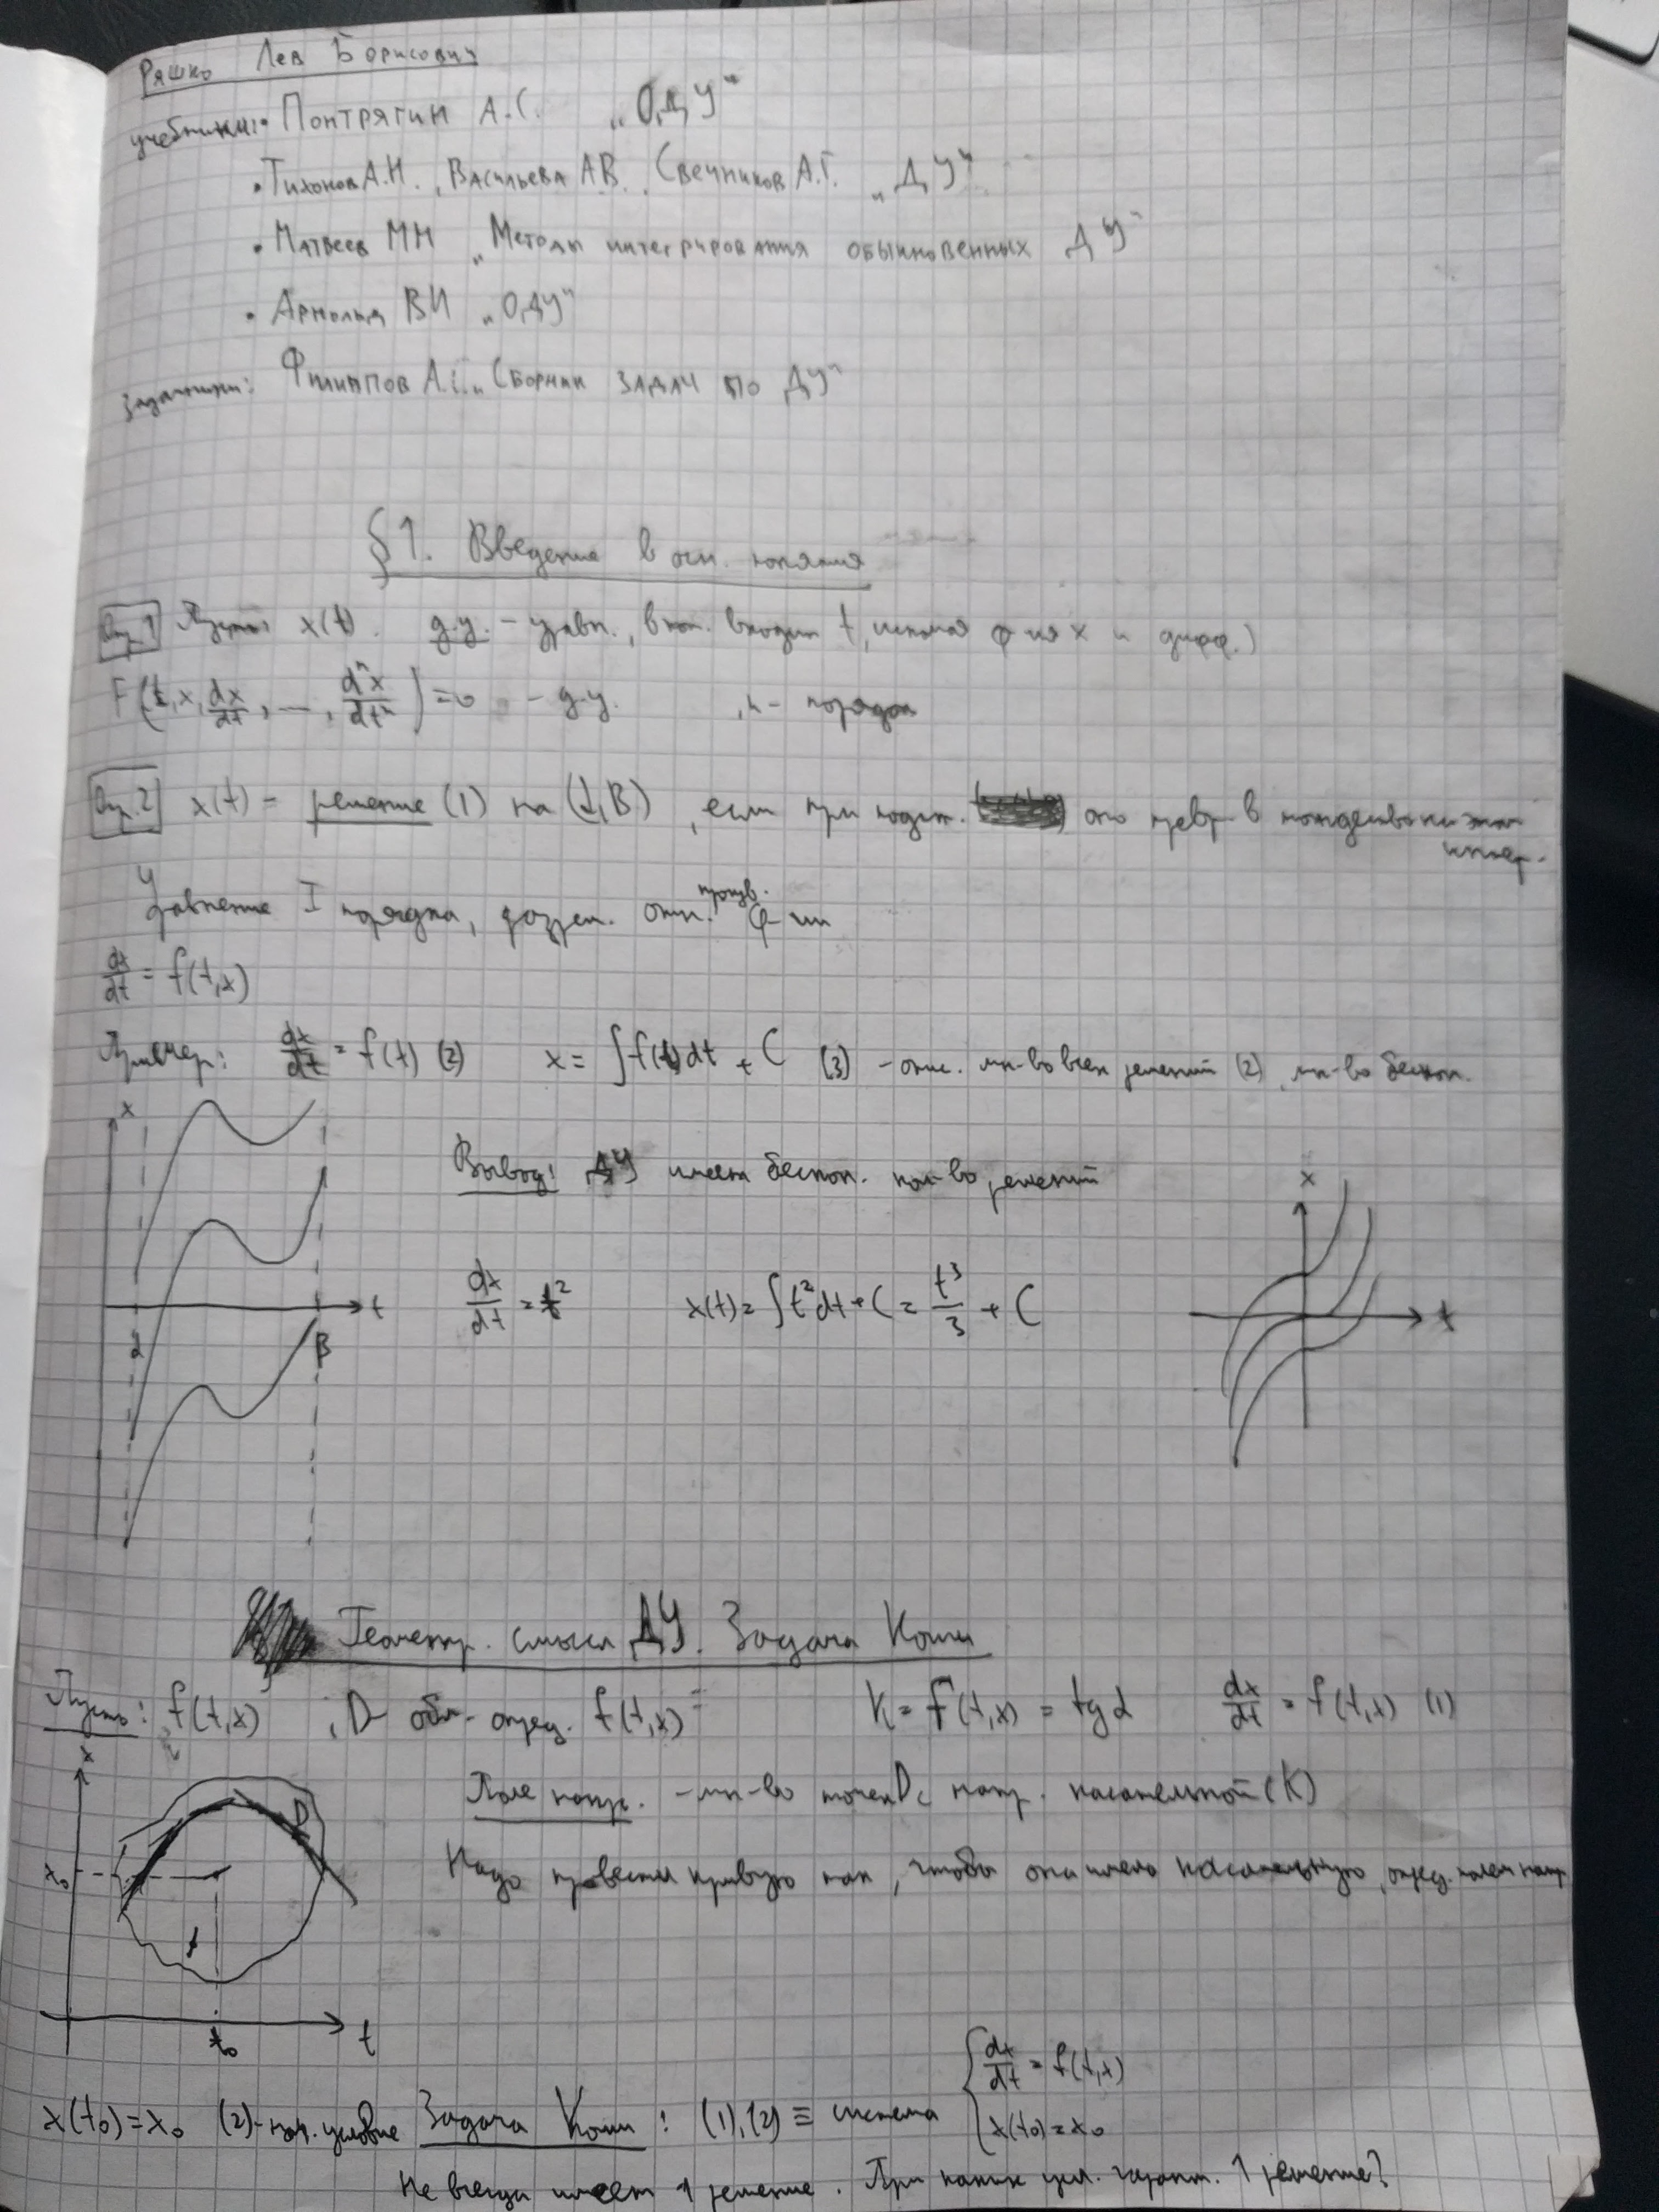 Ряшко Лев Борисович
учебники: • Понтрягин Л.С. „ОДУ“
• Тихонов А.Н., Васильева А.В., Свечников А.Г. „ДУ“
• Матвеев МН „Методы интегрирования обыкновенных ДУ“
• Арнольд ВИ „ОДУ“
задачники: Филиппов А.С. „Сборник задач по ДУ“
§1. Введение в осн. понятия
Опр. 1 Пусть x(t). д.у. – уравн., в кот. входит t, искомая ф-ия x и дифф.)
F(t, x, dx/dt, ..., dⁿx/dtⁿ) = 0 – д.у. , n – порядок
Опр. 2 x(t) – решение (1) на (α, β), если при подст. оно превр в тождество на этом
интер.
Уравнение I порядка, разреш. отн. произв. ф-ии
dx/dt = f(t,x)
Пример: dx/dt = f(t) (2) x = ∫f(t)dt + C (3) – опис. мн-во всех решений (2), мн-во бескон.
x
Вывод: ДУ имеет бескон. кол-во решений
x
dx/dt = t² x(t) = ∫t²dt + C = t³/3 + C
t
t
α β
Геометр. смысл ДУ. Задача Коши
Пусть: f(t,x) , D – обл. опред. f(t,x) K = f(t,x) = tg α dx/dt = f(t,x) (1)
x
D
Поле напр. – мн-во точек D с напр. касательной (K)
x₀
Надо провести кривую так, чтобы она имела касательную, опред. полем напр
t₀ t
x(t₀) = x₀ (2) – нач. условие Задача Коши: (1),(2) ≡ система { dx/dt = f(t,x)
x(t₀) = x₀
Не всегда имеет 1 решение. При каких усл. гарант. 1 решение?